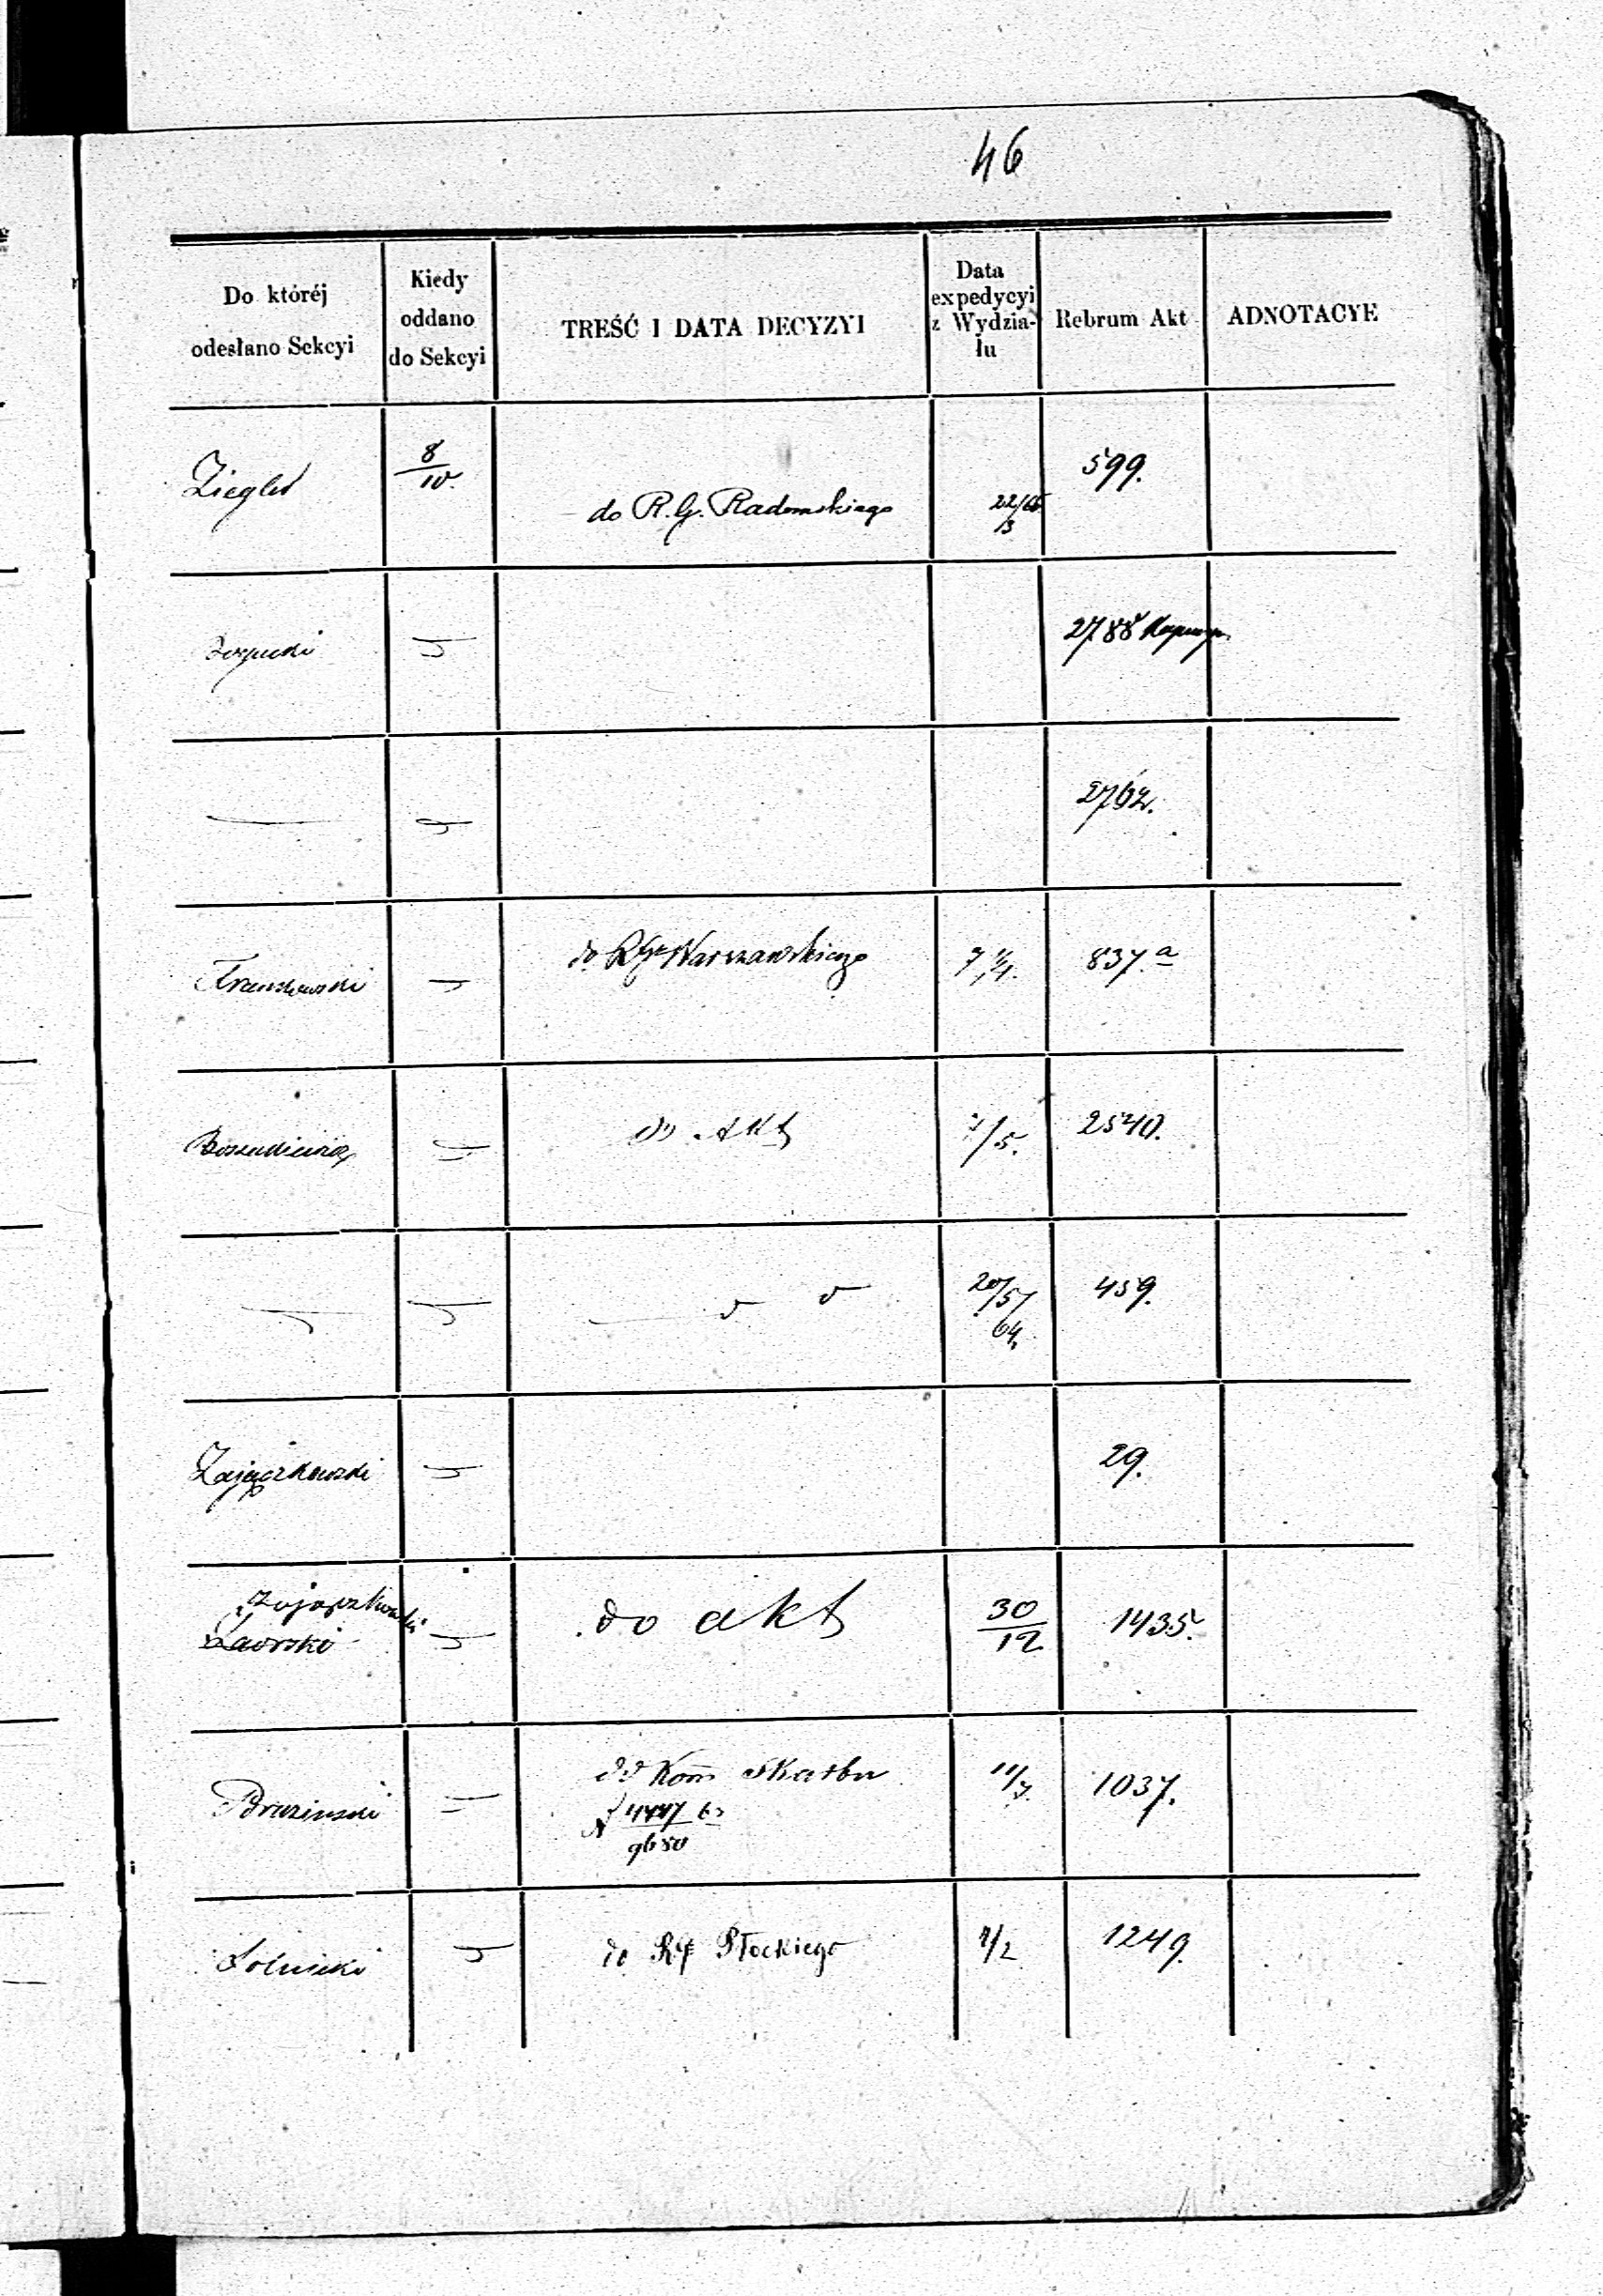 46
Do któréj odesłano Sekcyi
Kiedy oddano do Sekcyi
TREŚĆ I DATA DECYZYI
Data expedycyi z Wydzia- łu
Rebrum Akt
ADNOTACYE
Ziegler 8/10. do R. G. Radomskiego 22/3 599.
2788
2762.
do RGu Warszawskiego 837.a
do Akt 7/5. 2540.
20/5 64. 459.
Zajączkowski 29.
Zajączkowski
Zaorski do akt 30/12 1435.
Brzeziński do Kom Skarbu 11/7. 1037.
N 4447
9650
Solnicki do RG Płockiego 7/2 1249.